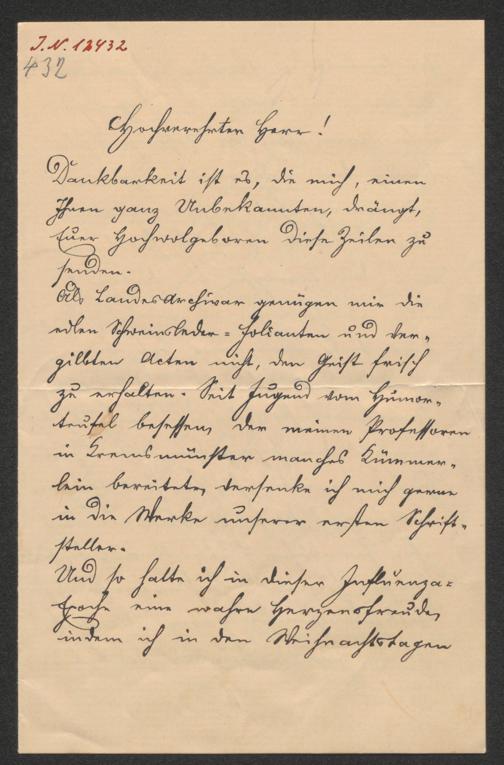 J.N. 12432
432
Hochverehrter Herr!
Dankbarkeit ist es, die mich, einen
Ihnen ganz Unbekannten, drängt,
Euer Hochwolgeboren diese Zeilen zu
senden.
Als Landesarchivar genügen mir die
edlen Schweinsleder-Folianten und ver-
gilbten Acten nicht, den Geist frisch
zu erhalten. Seit Jugend vom Humor-
teufel besessen, der meinen Professoren
in Kremsmünster manches Kümmer-
lein bereitete, versenke ich mich gerne
in die Werke unserer ersten Schrift-
steller.
Und so hatte ich in dieser Influenza-
Epoche eine wahre Herzensfreude,
indem ich in den Weihnachtstagen